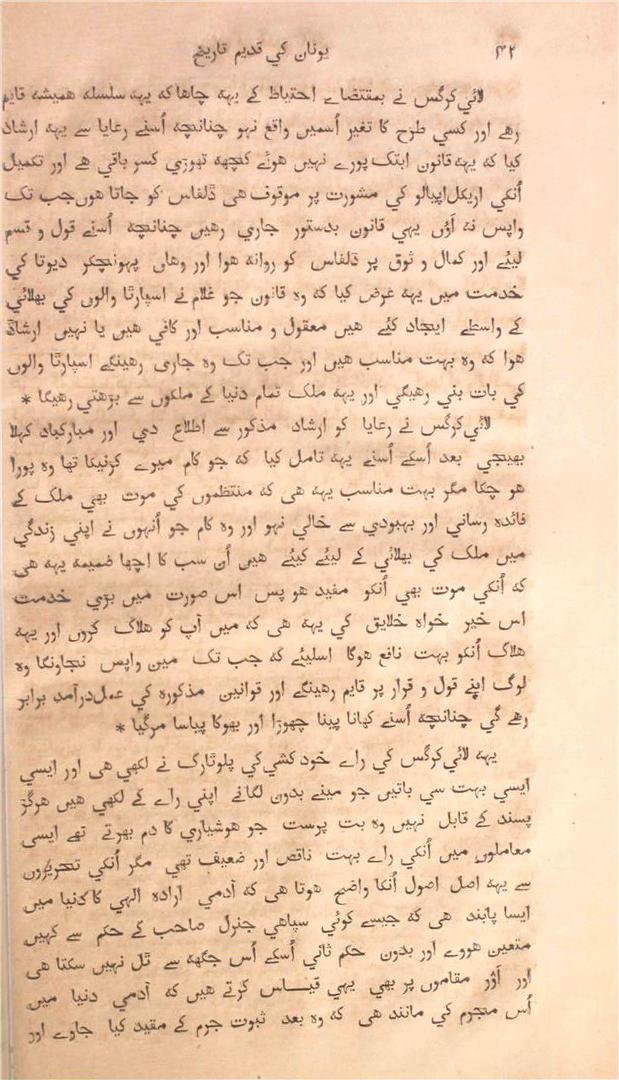 ۴۲
یونان کي قدیم تاریخ
لائي کرگس نے بمقتضاے احتیاط کے یہہ چاھا کہ یہہ سلسلہ همیشہ قایم
رھے اور کسي طرح کا تغیر اُسمیں واقع نہو چنانچہ اُسنے رعایا سے یہہ ارشاد
کیا کہ یہہ قانون ابتک پورے نہیں هوئے کچھہ تھوڑي کسر باقي ھے اور تکمیل
اُنکي اریکل اپیالو کي مشورت پر موقوف ھی ڈلفاس کو جاتا هوں جب تک
واپس نہ آؤں یہي قانون بدستور جاري رهیں چنانچہ اُسنے قول و قسم
لیئے اور کمال و ثوق پر ڈلفاس کو روانہ هوا اور وهاں پہونچکر دیوتا کي
خدمت میں یہہ عرض کیا کہ وہ قانون جو غلام نے اسپارتا والوں کي بھلائي
کے واسطے ایجاد کیئے هیں معقول و مناسب اور کافي هیں یا نہیں ارشاد
هوا کہ وہ بہت مناسب هیں اور جب تک وہ جاری رهینگے اسپارتا والوں
کي بات بني رهیگي اور یہہ ملک تمام دنیا کے ملکوں سے بڑهتي رهیگا *
لائي کرگس نے رعایا کو ارشاد مذکور سے اطلاع دي اور مبارکباد کہلا
بھیجي بعد اُسکے اُسنے یہہ تامل کیا کہ جو کام میرے کرنیکا تھا وہ پورا
هو چکا مگر بہت مناسب یہہ ھی کہ منتظموں کي موت بھي ملک کے
فائدہ رساني اور بہبودي سے خالي نہو اور وہ کام جو اُنہوں نے اپني زندگي
میں ملک کي بھلائي کے لیئے کیئے هیں اُن سب کا اچھا ضمیمہ یہہ ھی
کہ اُنکي موت بھي اُنکو مفید هو پس اس صورت میں بڑي خدمت
اس خیر خواہ خلایق کي یہہ ھی کہ میں آپ کو هلاک کروں اور یہہ
هلاک اُنکو بہت نافع هوگا اسلیئے کہ جب تک مین واپس نجاونگا وہ
لوگ اپنے قول و قرار پر قایم رهینگے اور قوانین مذکورہ کي عملدرآمد برابر
رهے گي چنانچہ اُسنے کھانا پینا چھوڑا اور بھوکا پیاسا مرگیا *
یہہ لائي کرگس کي راے خود کشي کي پلوتارک نے لکھي ھی اور ایسي
ایسي بہت سی باتیں جو مینے بدون لگانے اپني راے کے لکھي هیں هرگز
پسند کے قابل نہیں وہ بت پرست جو هوشیاري کا دم بھرتے تھے ایسی
معاملوں میں اُنکي راے بہت ناقص اور ضعیف تھي مگر اُنکي تحریروں
سے یہہ اصل اصول اُنکا واضح هوتا ھی کہ آدمي ارادہ الہي کا دنیا میں
ایسا پابند ھی کہ جیسے کوئي سپاهي جنرل صاحب کے حکم سے کہیں
متعین هووے اور بدون حکم ثاني اُسکے اُس جگھہ سے ٹل نہیں سکتا ھی
اور اَوْر مقاموں پر بھي یہي قیاس کرتے هیں کہ آدمي دنیا میں
اُس مجرم کي مانند ھی کہ وہ بعد ثبوت جرم کے مقید کیا جاوے اور